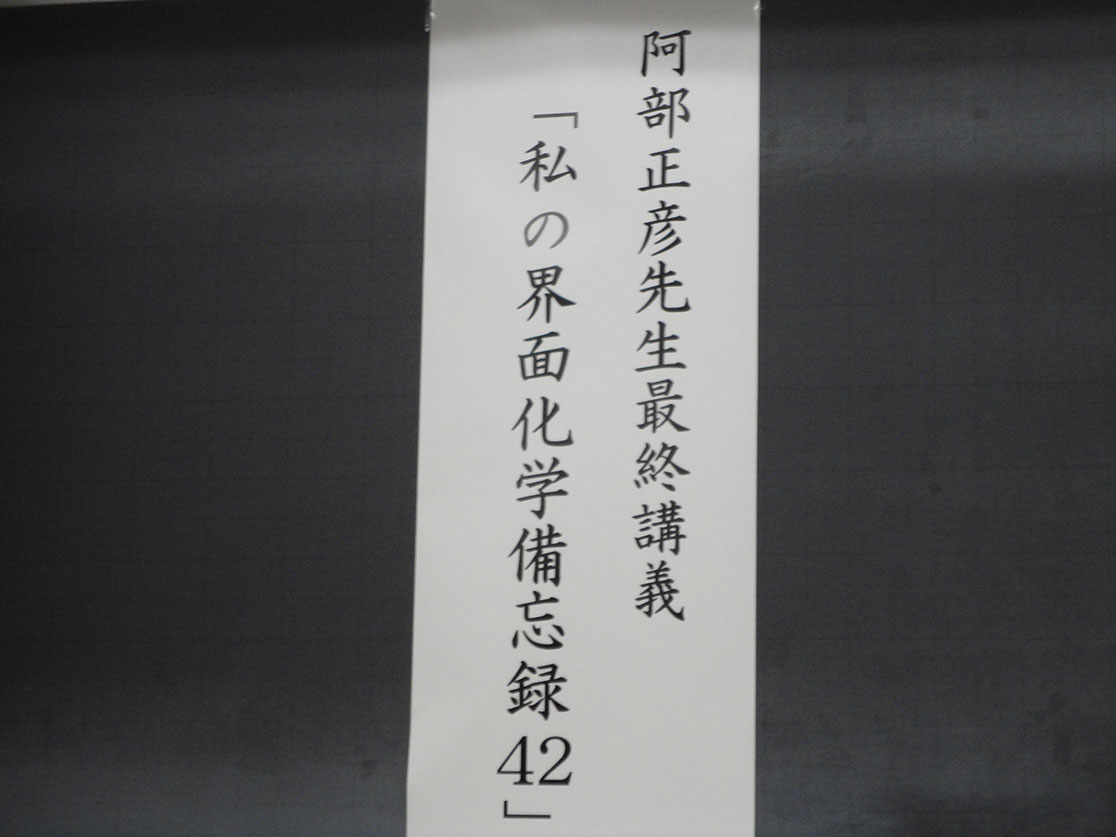 阿部正彦先生最終講義
「私の界面化学備忘録42」